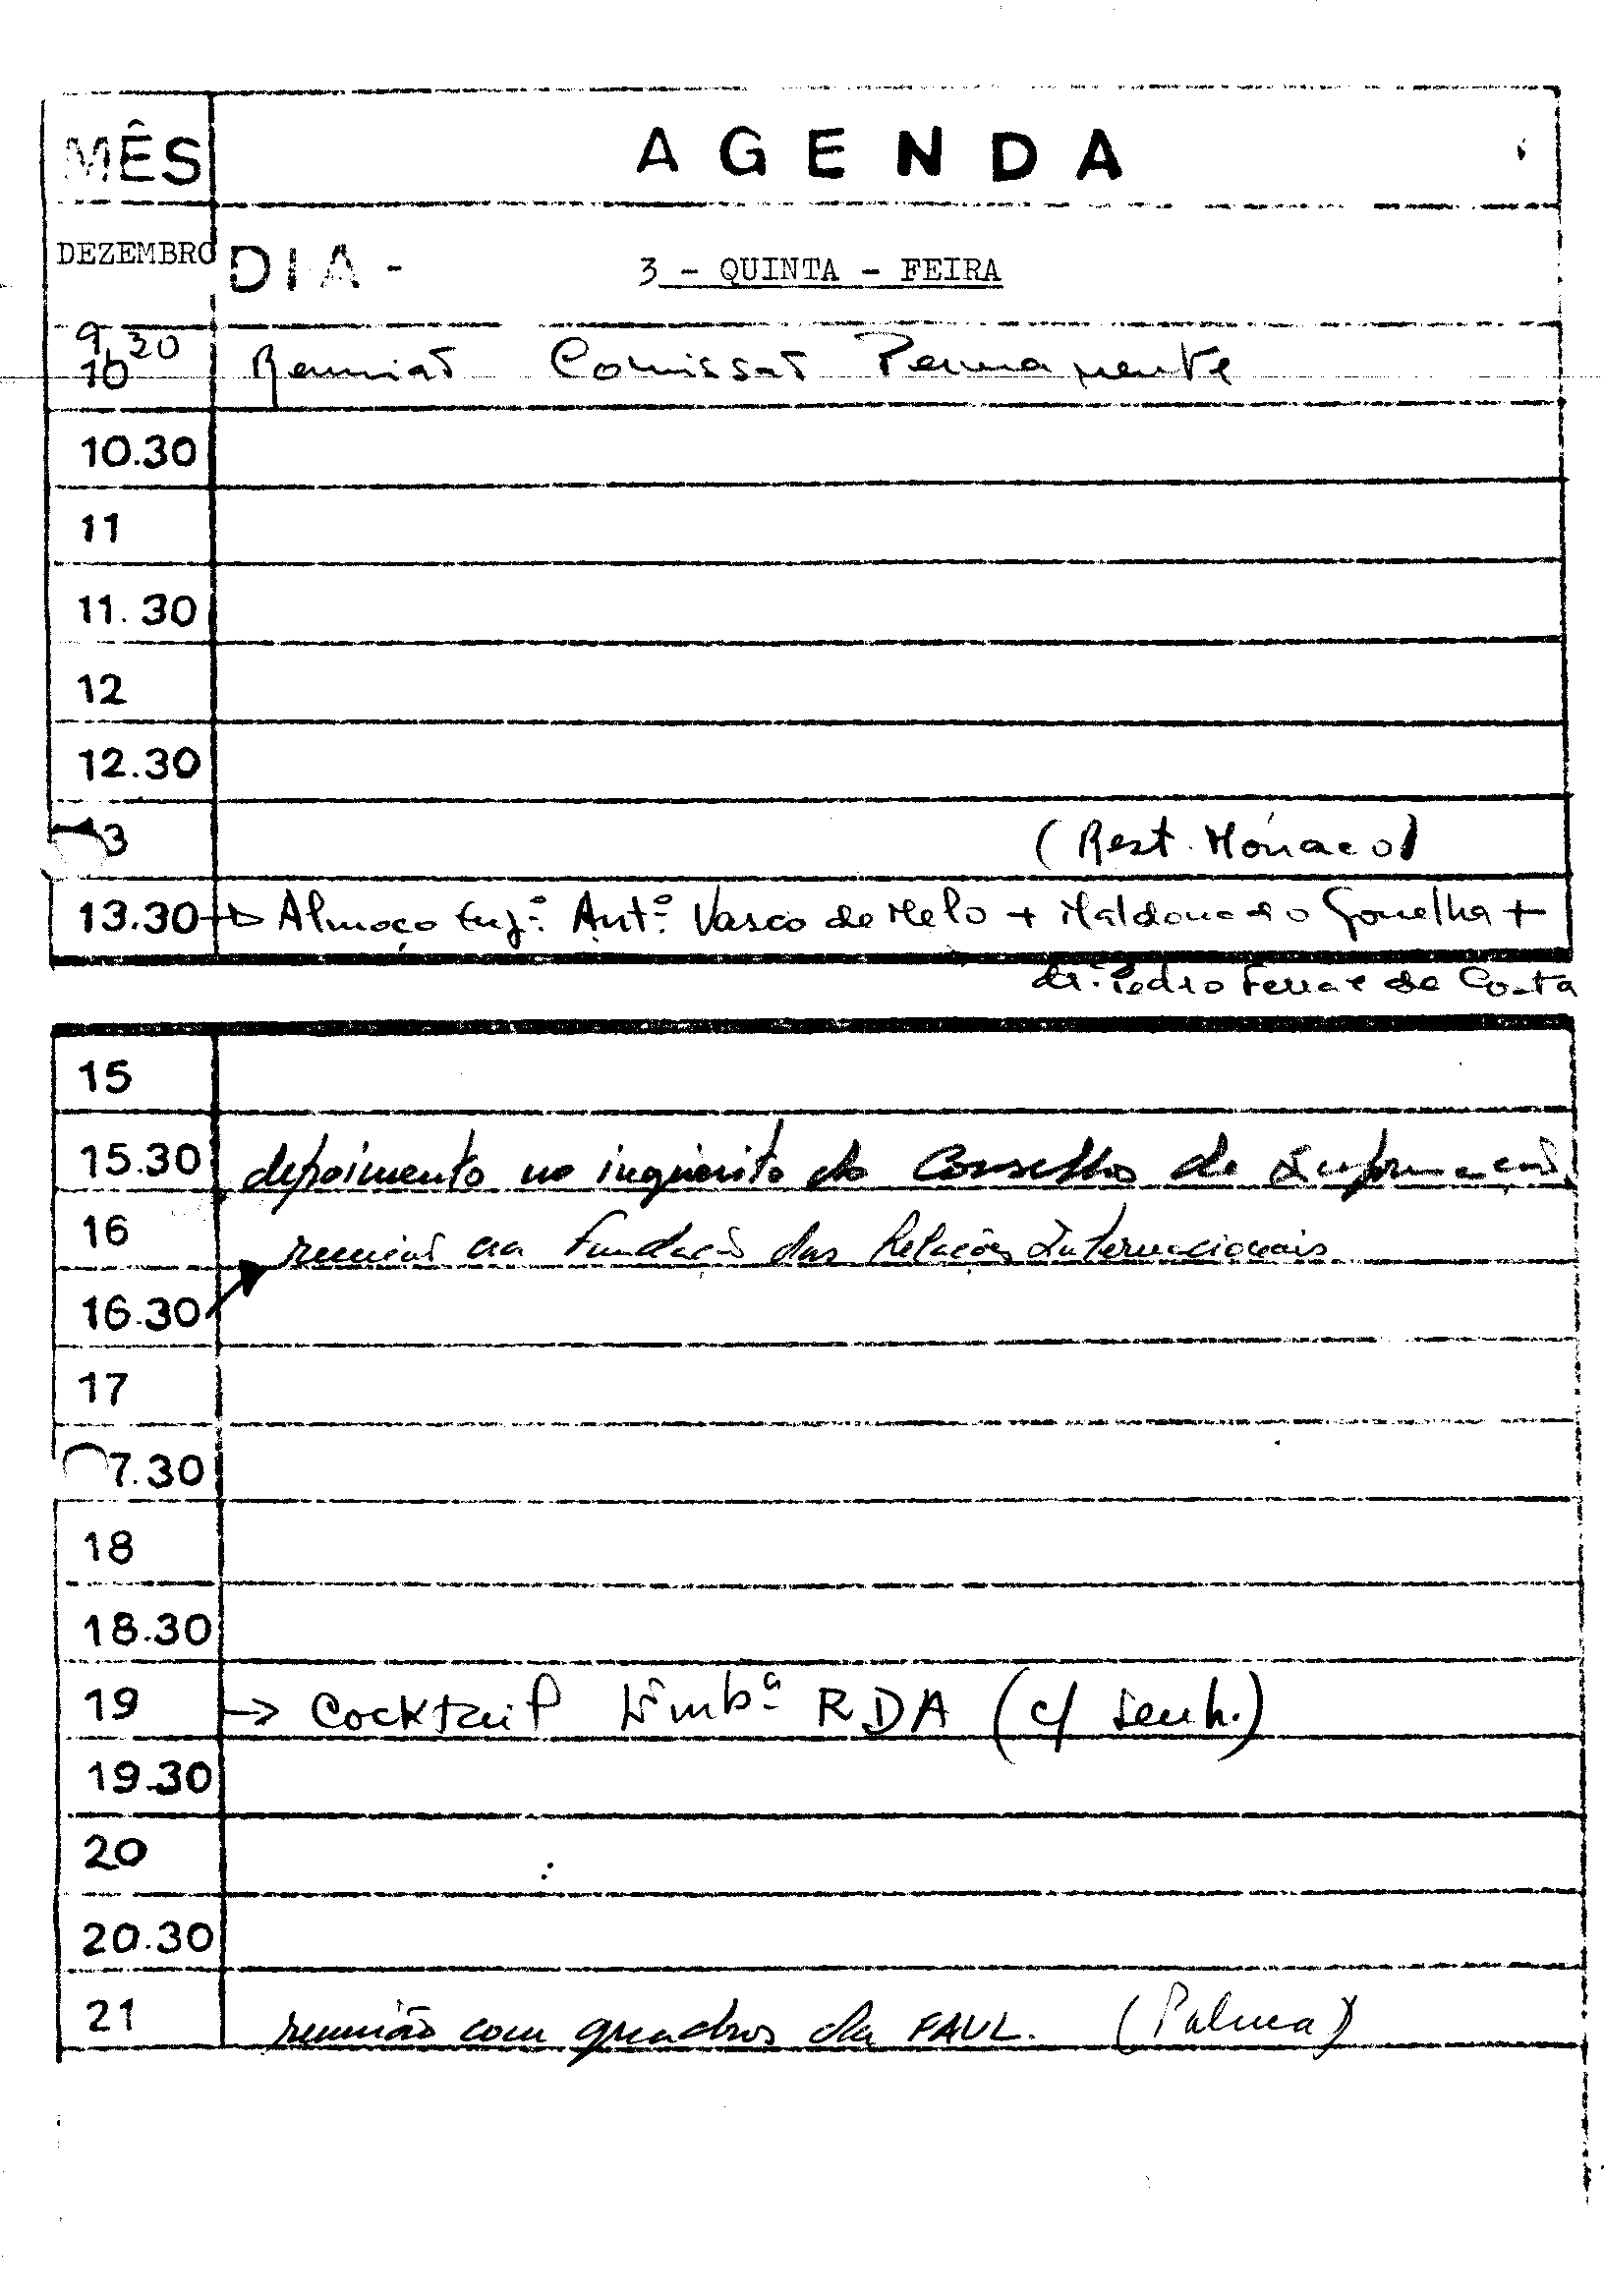 MÊS AGENDA
DEZEMBRO DIA - 3 - QUINTA - FEIRA
9,30
10 Reunião Comissão Permanente
10.30
11
11.30
12
12.30
13 (Rest. Mónaco)
13.30 → Almoço Engº. Antº. Vasco de Melo + Maldonado Gonelha +
dr. Pedro Ferraz da Costa
15
15.30 depoimento no inquérito do Conselho de Informação
16 reunião na Fundação das Relações Internacionais
16.30
17
17.30
18
18.30
19 → Cocktail Embª RDA (c/ senh.)
19.30
20
20.30
21 reunião com quadros da FAUL. (Palma)